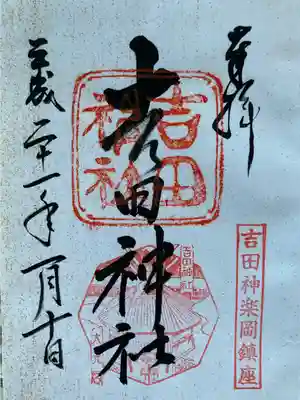 奉拝
吉田神社
平成二十一年一月十日
吉田神社
吉田神楽岡鎮座
吉田神社